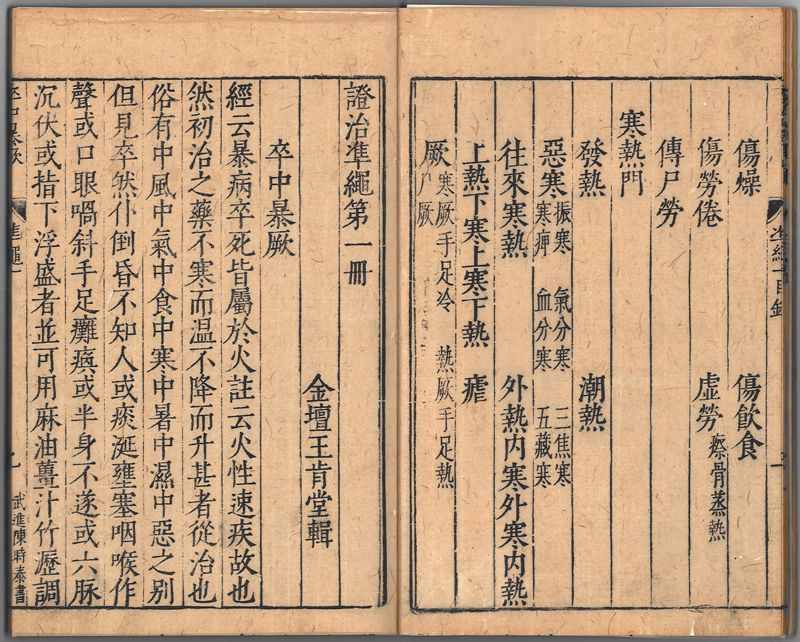 傷燥 傷飲食
傷勞倦 虛勞 瘵骨蒸熱
傳尸勞
寒熱門
發熱 潮熱
惡寒 振寒 寒痺 氣分寒 血分寒 三焦寒 五藏寒
往來寒熱 外熱內寒外寒內熱
上熱下寒上寒下熱 瘧
厥 寒厥手足冷 熱厥手足熱 尸厥
證治準繩第一冊
金壇王肯堂輯
卒中暴厥
經云暴病卒死皆屬於火註云火性速疾故也
然初治之藥不寒而溫不降而升甚者從治也
俗有中風中氣中食中寒中暑中濕中惡之別
但見卒然仆倒昏不知人或痰涎壅塞咽喉作
聲或口眼喎斜手足癱瘓或半身不遂或六脈
沉伏或指下浮盛者並可用麻油薑汁竹瀝調
卒中暴厥 準繩一
武進陳時泰書